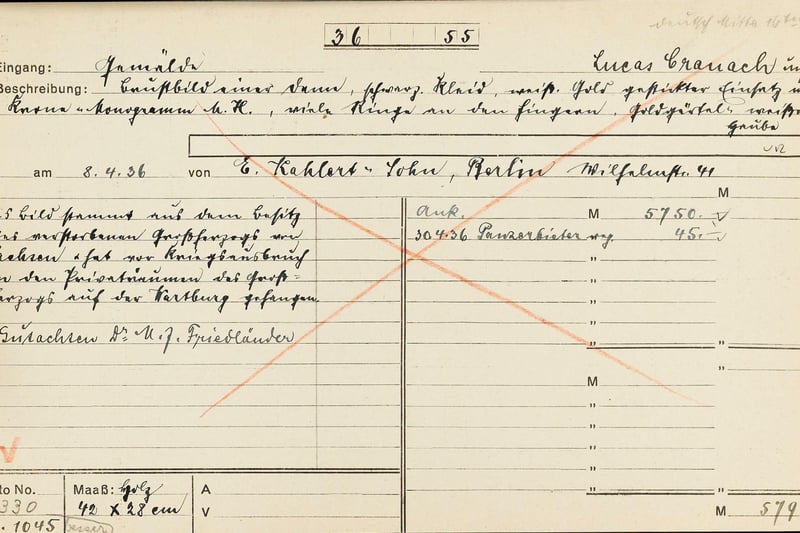 deutsch Mitte 16ten
36 55
Eingang: Gemälde Lucas Cranach un
Beschreibung: Brustbild einer Dame, schwarz. Kleid, weiß. Gold gestickter Einsatz u
Krone "Monogramm M. H., viele Ringe an den Fingern, Goldgürtel" weiße
Haube
am 8.4.36 von E. Kahlert & Sohn, Berlin Wilhelmstr. 41
M
s Bild stammt aus dem Besitz
es verstorbenen Großherzogs von
achsen & hat vor Kriegsausbruch
n den Privaträumen des Groß=
erzogs auf der Wartburg gehangen.
Gutachten Dr M. J. Friedländer
Ank. M 5750.
30.4.36 Panzerbieter 45.-
M
to No. Maaß: Holz A
330 42 x 28 cm V M 579
. 1045 besser